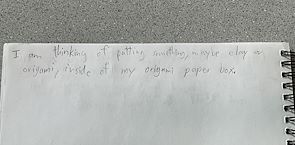 I am thinking of putting something, maybe clay or
origami, inside of my origami paper box.